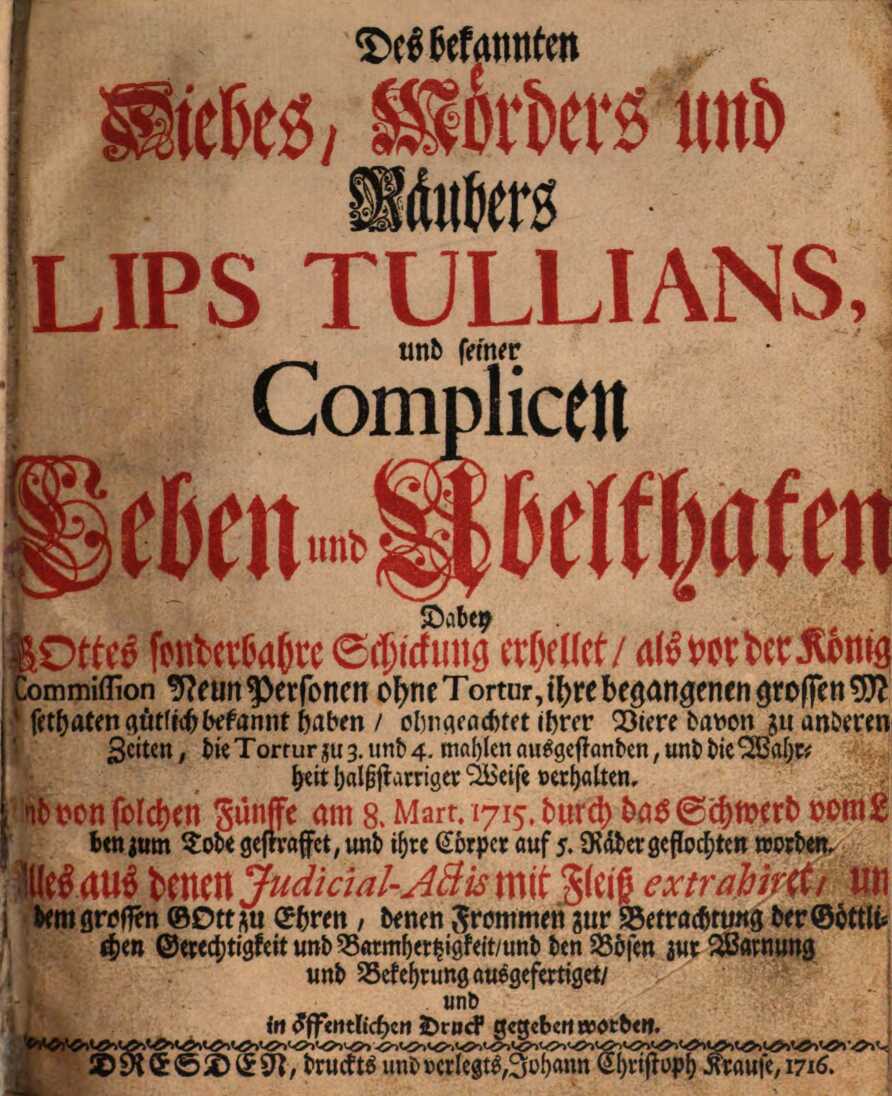 Des bekannten
Diebes, Mörders und
Räubers
LIPS TULLIANS,
und seiner
Complicen
Leben und Ubelthaten
Dabey
GOttes sonderbahre Schickung erhellet / als vor der König
Commission Neun Personen ohne Tortur, ihre begangenen grossen M
sethaten gütlich bekannt haben / ohngeachtet ihrer Viere davon zu anderen
Zeiten, die Tortur zu 3. und 4. mahlen ausgestanden, und die Wahr-
heit halßstarriger Weise verhalten.
nd von solchen Fünffe am 8. Mart. 1715. durch das Schwerd vom L
ben zum Tode gestraffet, und ihre Cörper auf 5. Räder geflochten worden.
Alles aus denen Judicial-Actis mit Fleiß extrahiret, un
dem grossen GOtt zu Ehren / denen Frommen zur Betrachtung der Göttli-
chen Gerechtigkeit und Barmhertzigkeit / und den Bösen zur Warnung
und Bekehrung ausgefertiget /
und
in öffentlichen Druck gegeben worden.
DRESDEN, druckts und verlegts, Johann Christoph Krause, 1716.